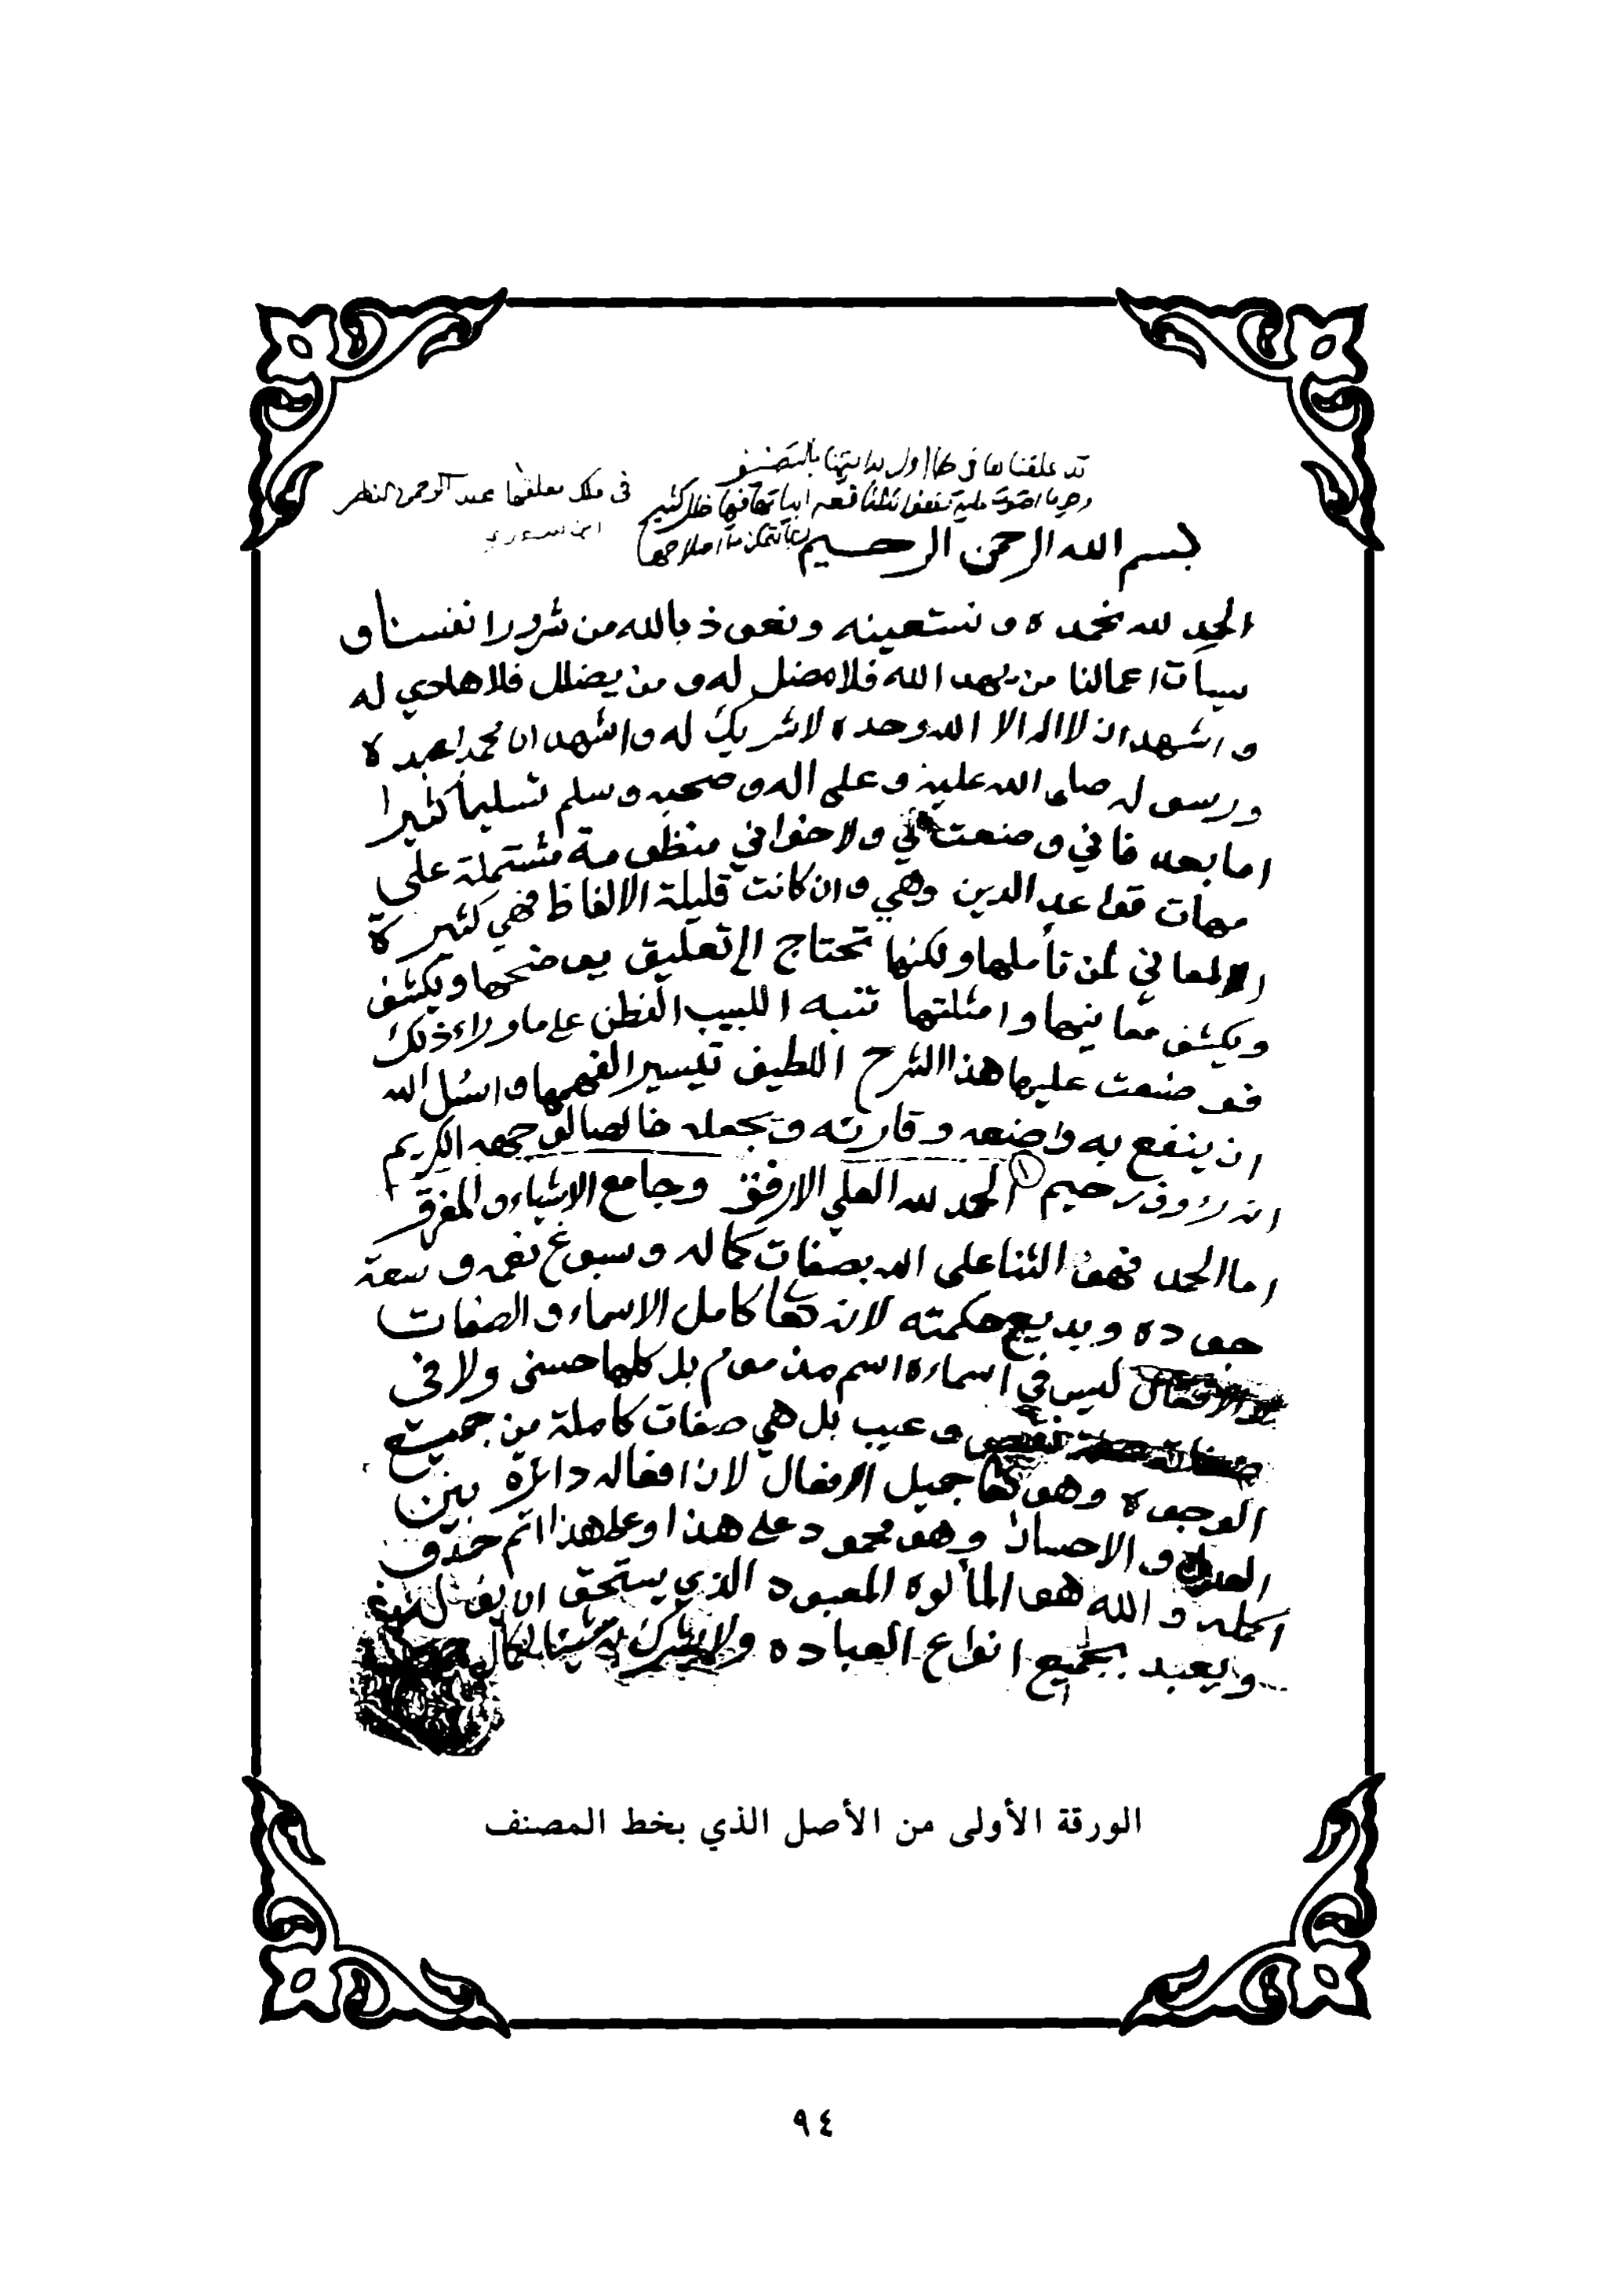 قد علقناها في اول بدايتنا بالتصنيف
وهي ما احتوت عليه
في ملك معلقها عبد الرحمن الناصر
ابن سعدي
بسم الله الرحمن الرحيم
الحمد لله نحمده و نستعينه ونعوذ بالله من شرور انفسنا و
سيات اعمالنا من يهد الله فلا مضل له و من يضلل فلا هادي له
و اشهد ان لا اله الا الله وحده لا شريك له و اشهد ان محمدا عبده
ورسوله صلى الله عليه و على اله و صحبه و سلم تسليما كثيرا
اما بعد فاني وضعت لي ولاخواني منظومة مشتملة على
مهمات قواعد الدين وهي وان كانت قليلة الالفاظ فهي كثيرة
المعاني لمن تأملها ولكنها تحتاج الى تعليق يوضحها ويكشف
ويكشف معانيها وامثلتها تنبه اللبيب الفطن على ما وراء ذلك
فوضعت عليها هذا الشرح اللطيف تيسيرا لفهمها و اسئل الله
ان ينفع به واضعه وقارئه ويجعله خالصا لوجهه الكريم
انه رؤوف رحيم (١) الحمد لله العلي الارفق وجامع الاشياء والمفرق
اما الحمد فهو الثنا على الله بصفات كماله و سبوغ نعمه و سعة
جوده وبديع حكمته لانه تعا كامل الاسماء و الصفات
والافعال ليس في اسماءه اسم مذموم بل كلها حسنى ولا في
صفاته صفة نقص و عيب بل هي صفات كاملة من جميع
الوجوه وهو تعا جميل الافعال لان افعاله دائرة بين
العدل و الاحسان وهو محمود على هذا وعلى هذا اتم حمد و
اكمله و الله هو المألوه المعبود الذي يستحق ان
ويعبد بجميع انواع العباده ولا يشرك به شيئا لكمال
الورقة الأولى من الأصل الذي بخط المصنف
٩٤